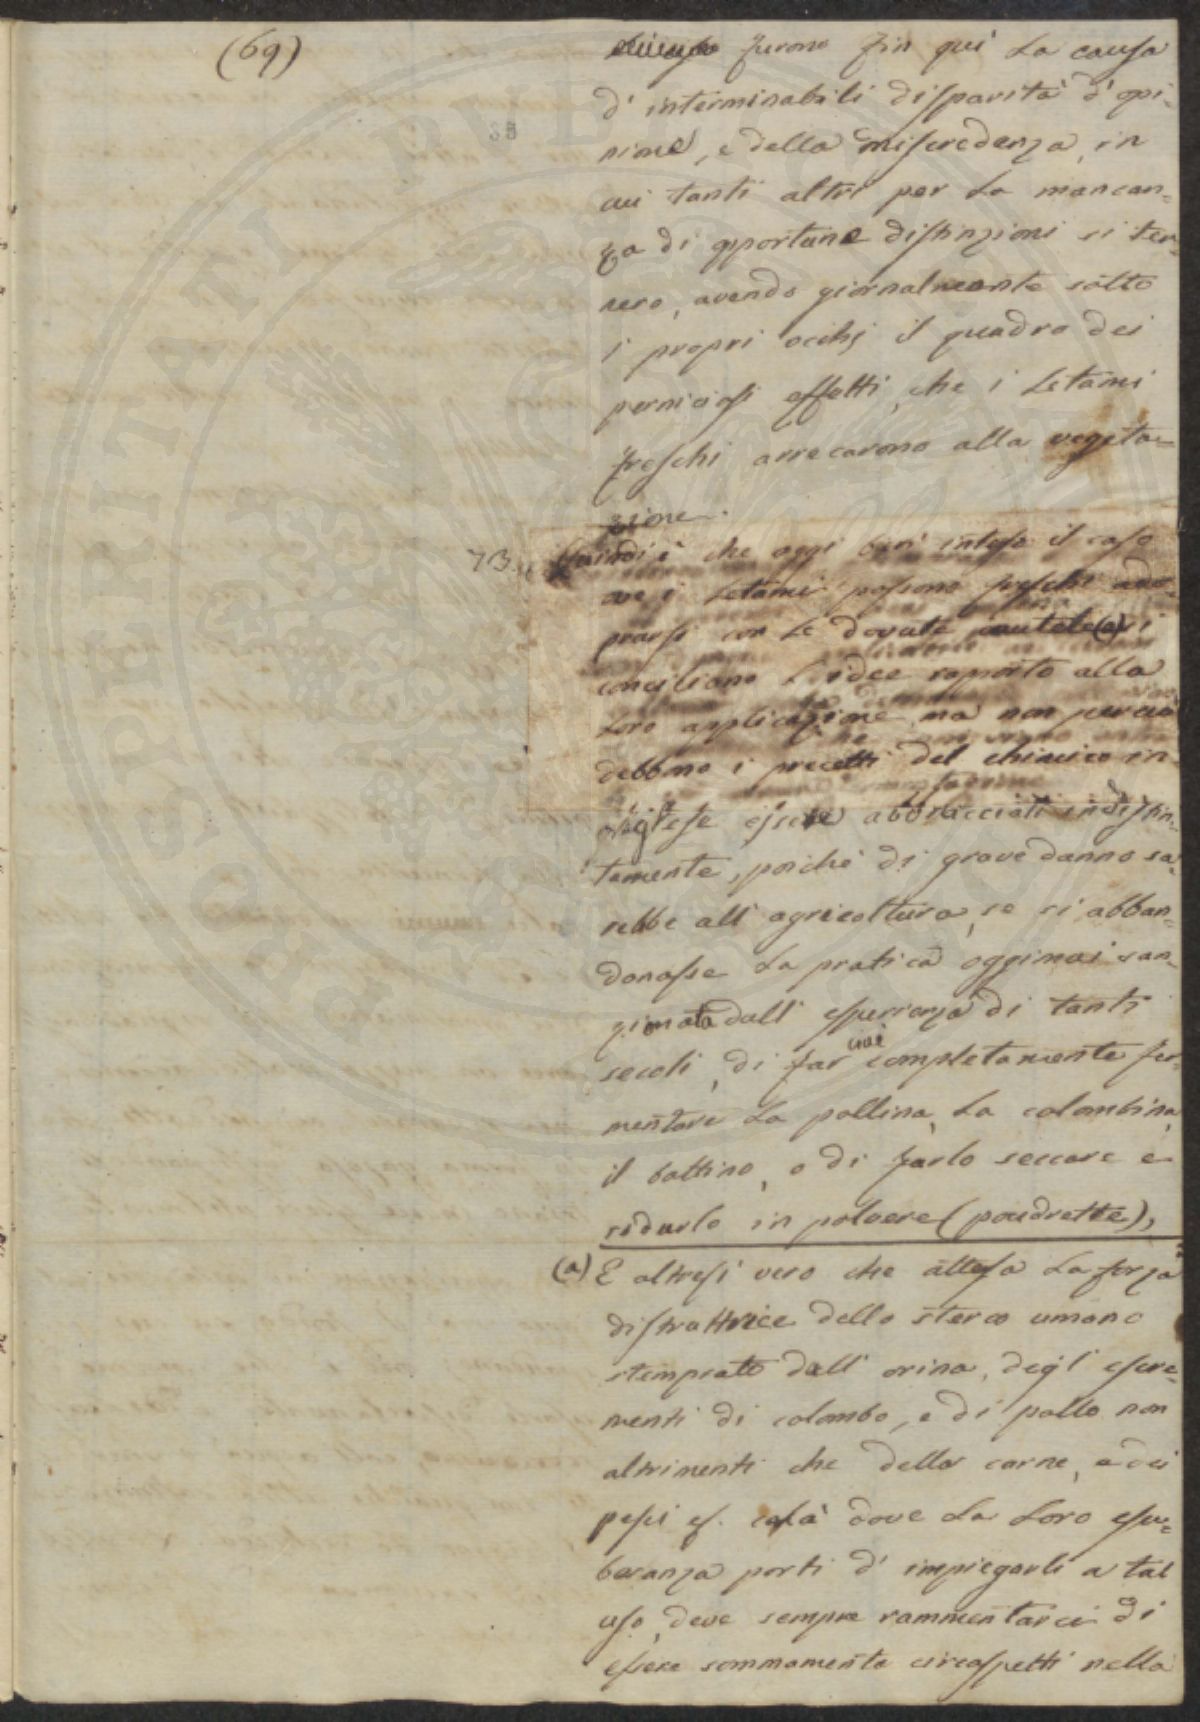 (69)
furono fin qui la causa
d' interminabili disparità d' opi=
nione, e della miscredenza, in
cui tanti altri per la mancan=
za di opportune distinzioni si ten=
nero, avendo giornalmente sotto
i propri occhj il quadro dei
perniciosi effetti, che i letami
freschi arrecarono alla vegeta=
zione.
73. Quindi è che oggi ben inteso il caso
ove i letami possono freschi ado=
prarsi con le dovute cautele (a) si
conciliano l' idee rapporto alla
loro applicazione, ma non perciò
debbono i precetti del chimico in=
glese essere abbracciati indistin=
tamente, poichè di grave danno sa=
rebbe all' agricoltura, se si abban=
donasse la pratica oggimai san=
zionata dall' esperienza di tanti
secoli, di far completamente fer=
mentare la pollina, la colombina,
il bottino, o di farlo seccare e
ridurlo in polvere (poudrette),
(a) E altresì vero che attesa la forza
distruttrice dello sterco umano
stemprato dall' orina, degl' escre=
menti di colombo, e di pollo non
altrimenti che della carne, e dei
pesci colà dove la loro esu=
beranza porti d' impiegarli a tal
uso, deve sempre rammentarci di
essere sommamente circospetti nella